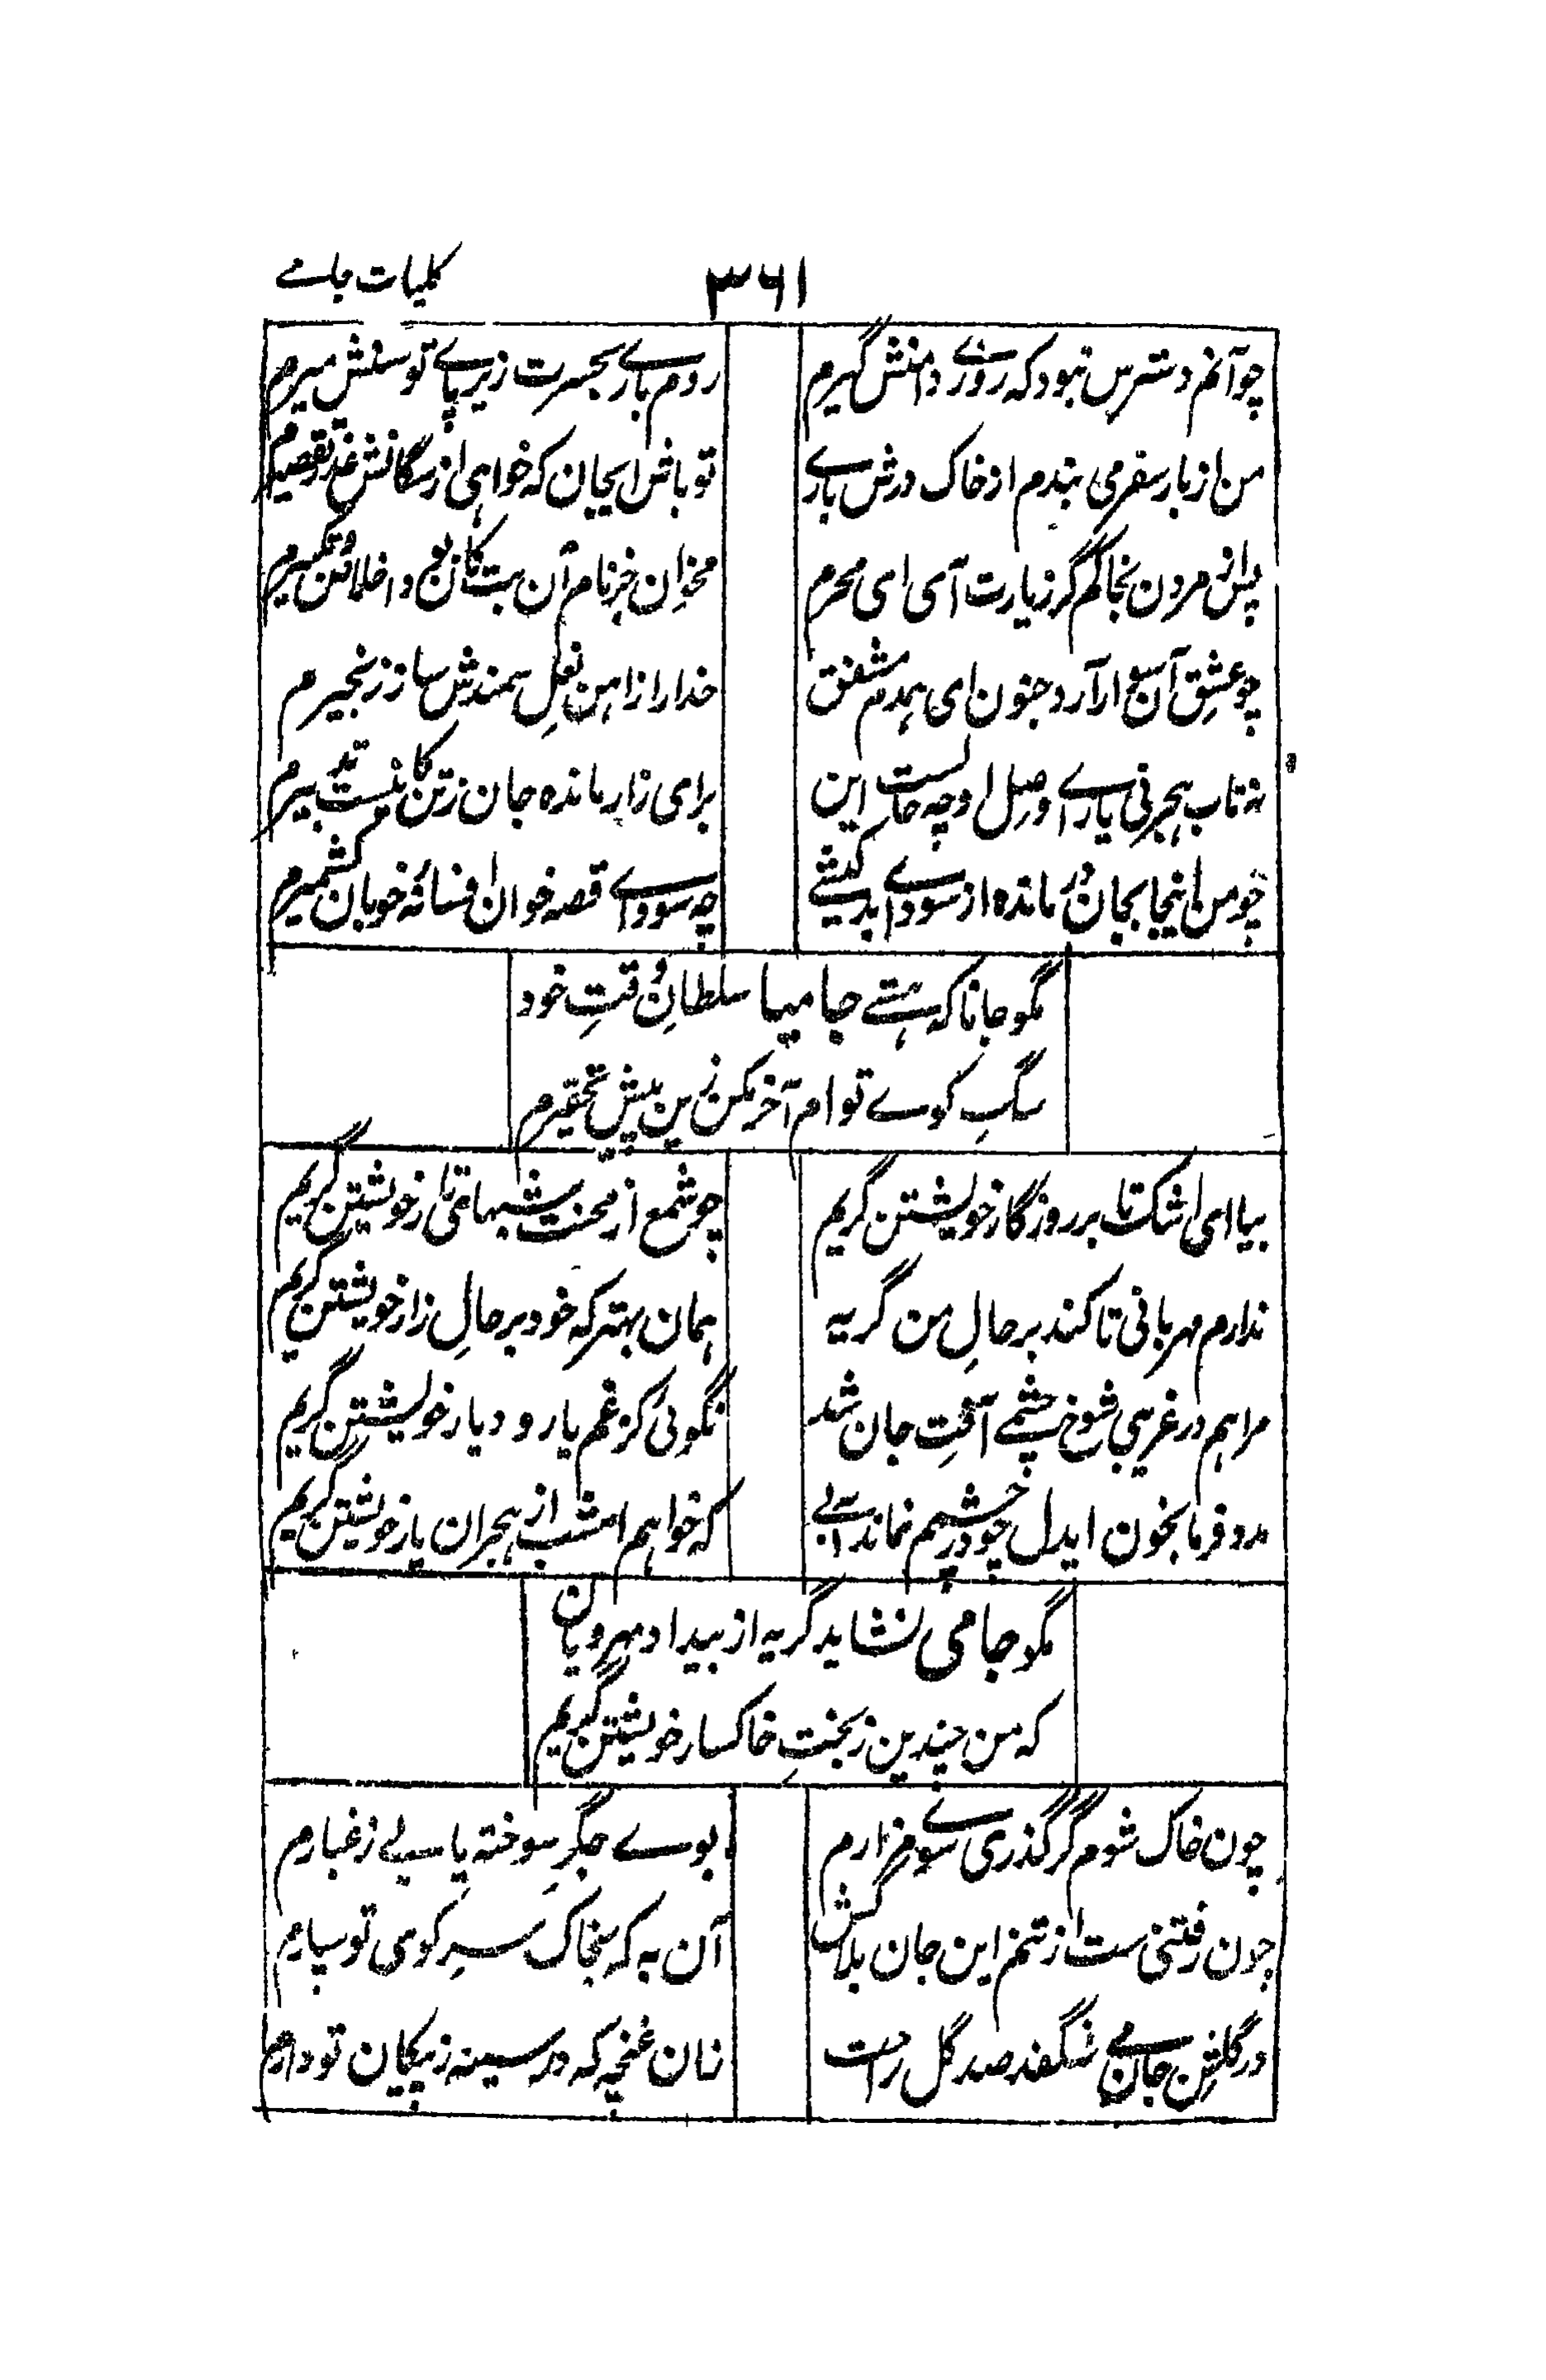 ۳۶۱
کلیات جامے
چو آنم دسترس نبود که روزے دامنش گیرم
روم بارے بحسرت زیر پاے توسنش میرم
من از بار سفر می بندم از خاک درش بارے
تو باش ایجان که خواهی از سگانش عذر تقصیرم
پس از مردن بخاکم گر زیارت آئی ای محرم
مخوان جز نام آن بت
چو عشق آن آرد جنون ای همدم مشفق
خدا را ز آهن نعل سمندش ساز زنجیرم
نه تاب هجر نی یارے وصل او چه حالست این
برای زار مانده جان ز تن کا نیست تدبیرم
چو من اینجا بجان در مانده از سوداے بدکیشے
چه سود اے قصه خوان افسانۂ خوبان کشمیرم
مگو جانا که هستے جامیا سلطان وقت خود
سگ کوے تو ام آخر مکن زین بیش تحقیرم
بیا ای اشک تا بر روزگار خویشتن گریم
چو شمع از محنت شبهای تار خویشتن گریم
ندارم مهربانی تا کند بر حال من گریه
همان بهتر که خود بر حال زار خویشتن گریم
مرا هم در غریبی شوخ چشمے آفت جان شد
نگوئی کز غم یار و دیار خویشتن گریم
مدد فرما بخون ایدل چو در چشمم نماند آبے
که خواهم امشب از هجران یار خویشتن گریم
مگو جامی نشاید گریه از بیداد مهرویان
که من چندین ز بخت خاکسار خویشتن گریم
چون خاک شوم گر گذری سوے مزارم
بوے جگر سوخته یابی ز غبارم
چون رفتنی ست از تنم این جان بلاکش
آن به که بخاک سر کوی تو سپارم
در گلشن جان مے شگفد صد گل راحت
زان غنچه که در سینه ز پیکان تو دارم